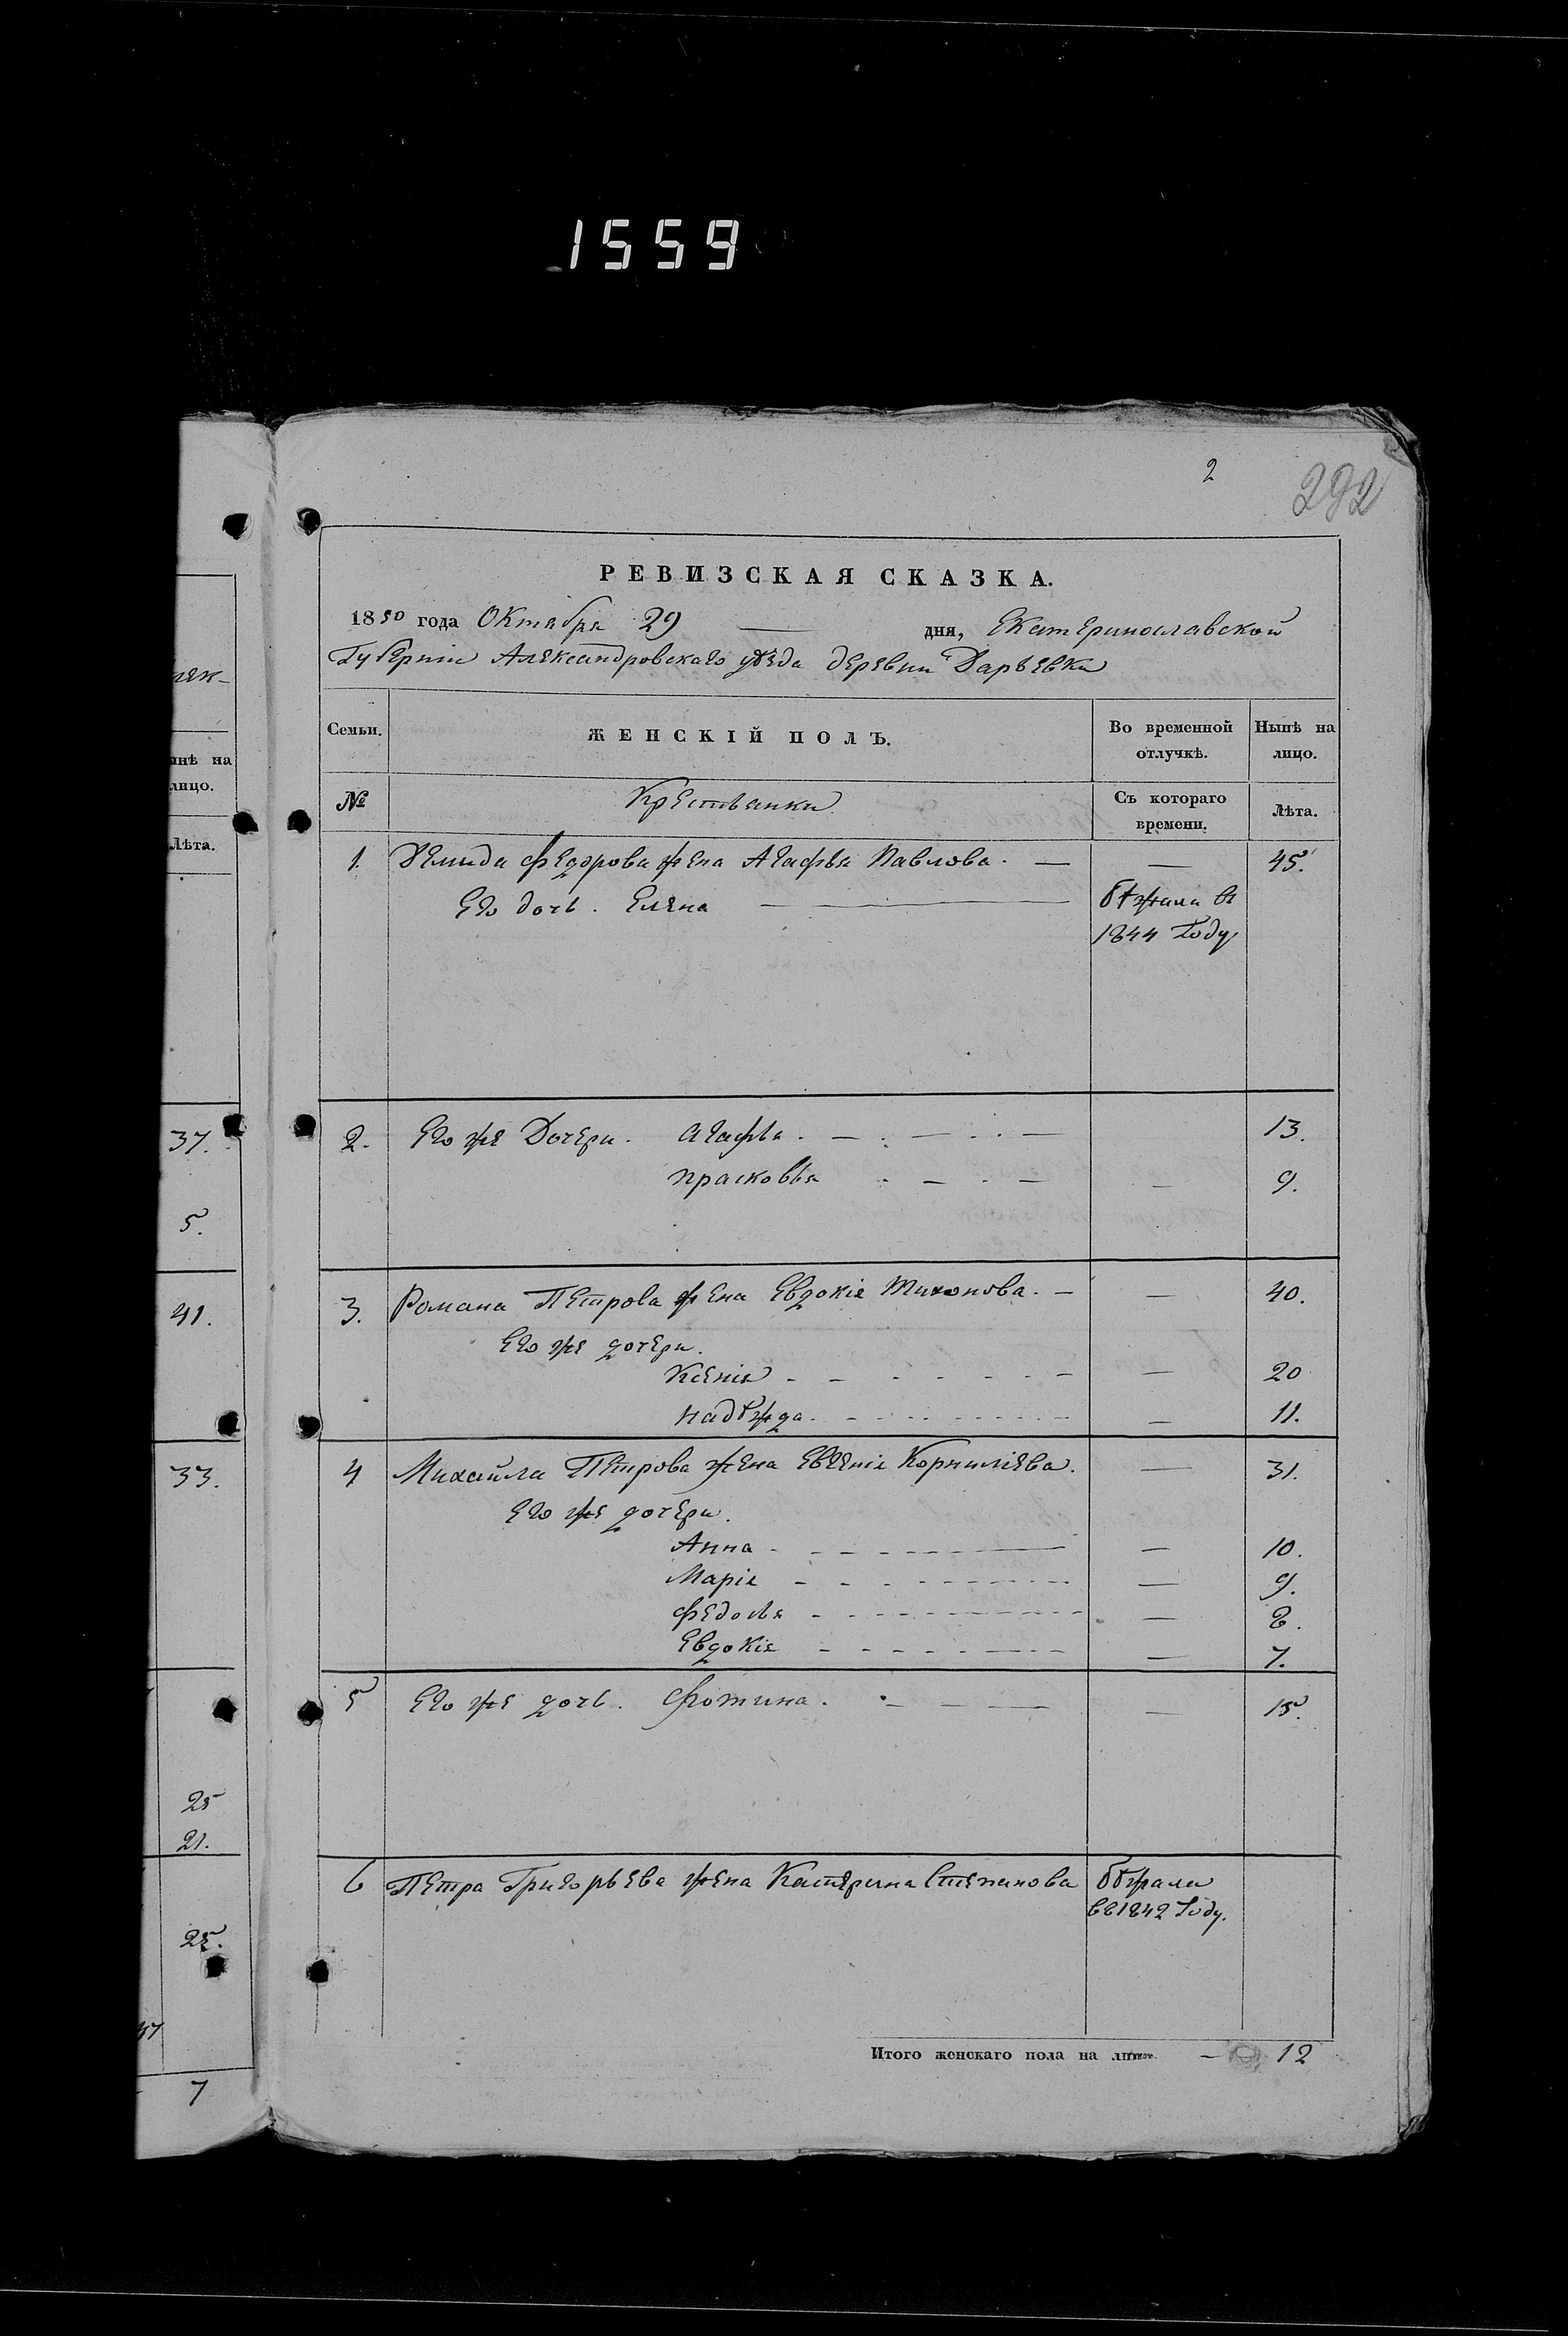 1559
2
292
РЕВИЗСКАЯ СКАЗКА.
1850 года Октября 29 — дня, Екатеринославской
Губерніи Александровскаго уѣзда деревни Дарьевки
Семьи.
ЖЕНСКІЙ ПОЛЪ.
Во временной отлучкѣ.
Нынѣ на лицо.
№
Крестьянки
Съ котораго времени.
Лѣта.
1. Федорова жена Агафья Павлова. — — 45.
Его дочь. Елена — бѣжала въ
1844 Году
2. Его же Дочери. Агафья. — 13.
Прасковья — — 9.
3. Романа Петрова жена Евдокія Тихонова. — — 40.
Его же дочери.
Ксенія — — 20
Надѣжда. — — 11.
4 Михайла Петрова жена Евгенія Корниліева. — 31.
Его же дочери.
Анна — — 10.
Марія — — 9.
Федосья — — 8.
Евдокія — — 7.
5 Его же дочь. Фотина. — — 15.
6 Петра Григорьева жена Катерина Степанова бѣжала
въ 1842 Году.
Итого женскаго пола на лицо. — 12
нѣ на
лицо.
Лѣта.
37.
5.
41.
33.
25
21.
25.
7